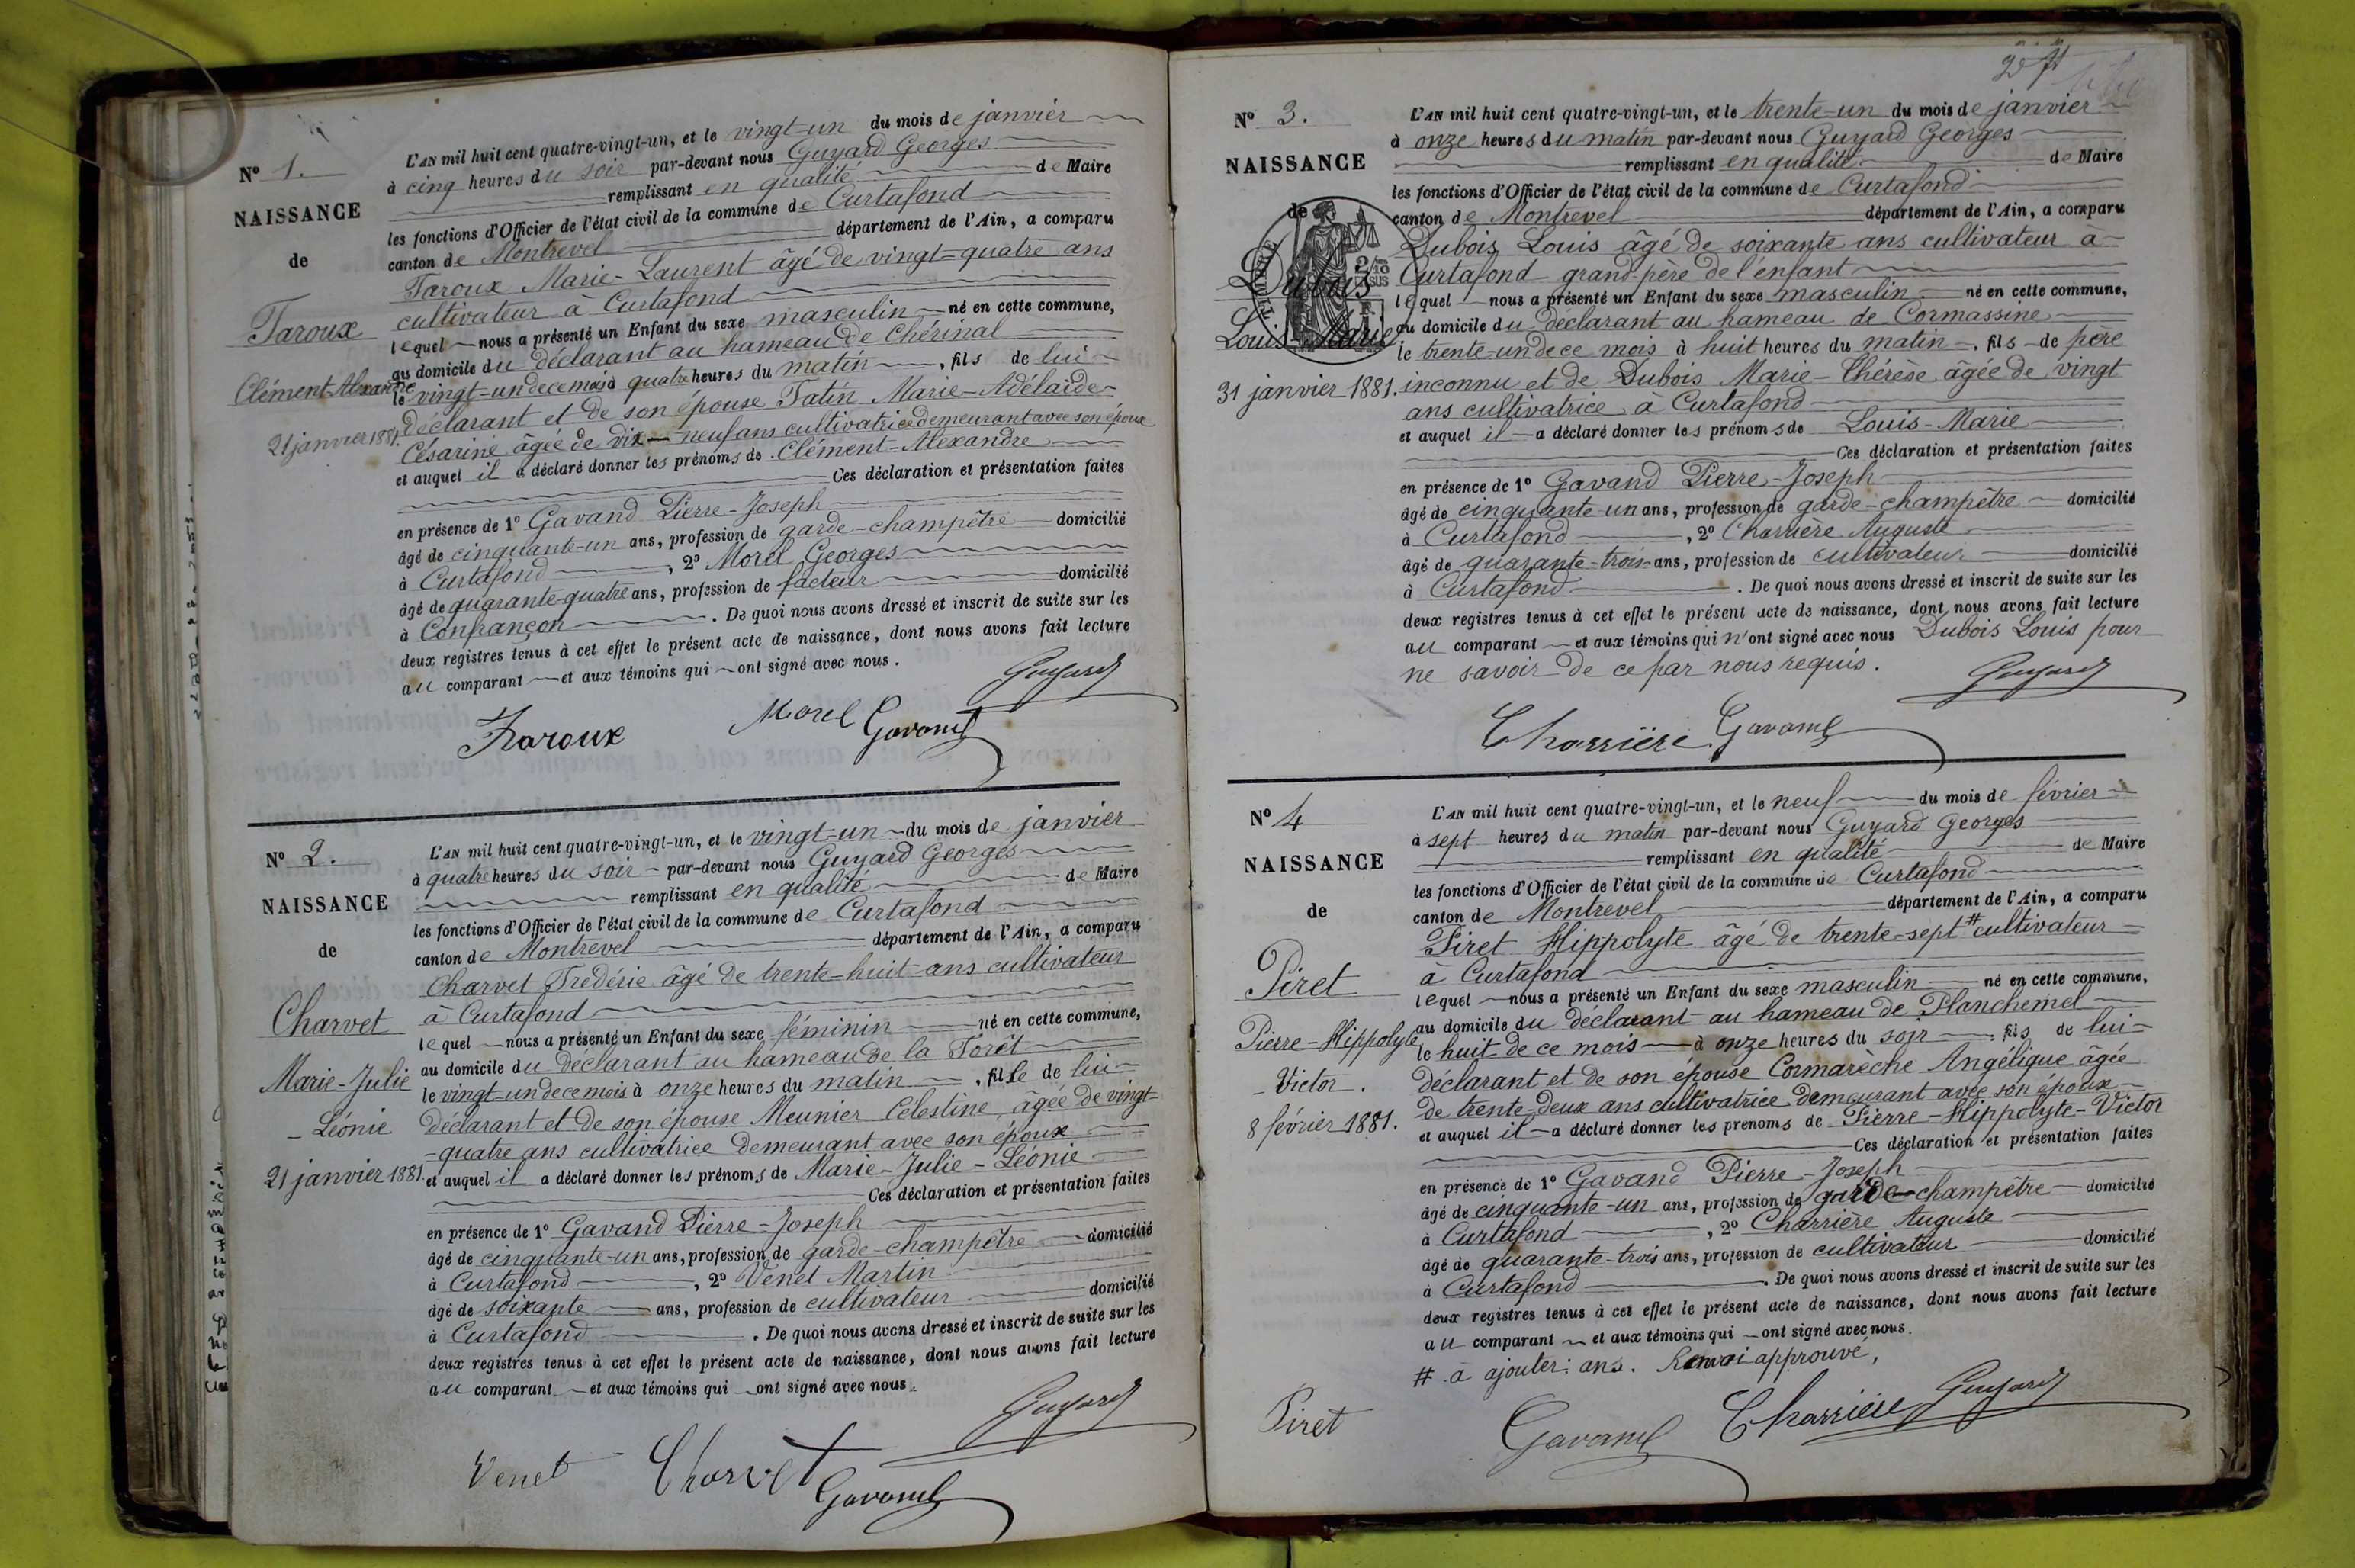 N° 1.
NAISSANCE
de
Taroux
Clément-Alexandre
21 janvier 1881.
L'AN mil huit cent quatre-vingt-un, et le vingt-un du mois de janvier
à cinq heures du soir par-devant nous Guyard Georges
remplissant en qualité de Maire
les fonctions d'Officier de l'état civil de la commune de Curtafond
canton de Montrevel département de l'Ain, a comparu
Taroux Marie-Laurent âgé de vingt-quatre ans
cultivateur à Curtafond
lequel nous a présenté un Enfant du sexe masculin né en cette commune,
au domicile du déclarant au hameau de Chérinal
le vingt-un de ce mois à quatre heures du matin, fils de lui
déclarant et de son épouse Tatin Marie-Adélaïde-
Césarine âgée de dix-neuf ans cultivatrice demeurant avec son époux
et auquel il a déclaré donner les prénoms de Clément-Alexandre
Ces déclaration et présentation faites
en présence de 1° Gavand Pierre-Joseph
âgé de cinquante-un ans, profession de garde-champêtre domicilié
à Curtafond, 2° Morel Georges
âgé de quarante-quatre ans, profession de facteur domicilié
à Confrançon. De quoi nous avons dressé et inscrit de suite sur les
deux registres tenus à cet effet le présent acte de naissance, dont nous avons fait lecture
au comparant et aux témoins qui ont signé avec nous.
Guyard
Taroux Morel Gavand
N° 2.
NAISSANCE
de
Charvet
Marie-Julie
-Léonie
21 janvier 1881.
L'AN mil huit cent quatre-vingt-un, et le vingt-un du mois de janvier
à quatre heures du soir par-devant nous Guyard Georges
remplissant en qualité de Maire
les fonctions d'Officier de l'état civil de la commune de Curtafond
canton de Montrevel département de l'Ain, a comparu
Charvet Frédéric âgé de trente-huit ans cultivateur
à Curtafond
lequel nous a présenté un Enfant du sexe féminin né en cette commune,
au domicile du déclarant au hameau de la Forêt
le vingt-un de ce mois à onze heures du matin, fille de lui
déclarant et de son épouse Meunier Célestine, âgée de vingt-
-quatre ans cultivatrice demeurant avec son époux
et auquel il a déclaré donner les prénoms de Marie-Julie-Léonie
Ces déclaration et présentation faites
en présence de 1° Gavand Pierre-Joseph
âgé de cinquante-un ans, profession de garde-champêtre domicilié
à Curtafond, 2° Venet Martin
âgé de soixante ans, profession de cultivateur domicilié
à Curtafond. De quoi nous avons dressé et inscrit de suite sur les
deux registres tenus à cet effet le présent acte de naissance, dont nous avons fait lecture
au comparant et aux témoins qui ont signé avec nous.
Guyard
Venet Charvet Gavand
N° 3.
NAISSANCE
de
Dubois
Louis-Marie
31 janvier 1881.
L'AN mil huit cent quatre-vingt-un, et le trente-un du mois de janvier
à onze heures du matin par-devant nous Guyard Georges
remplissant en qualité de Maire
les fonctions d'Officier de l'état civil de la commune de Curtafond
canton de Montrevel département de l'Ain, a comparu
Dubois Louis âgé de soixante ans cultivateur à
Curtafond grand-père de l'enfant
lequel nous a présenté un Enfant du sexe masculin né en cette commune,
au domicile du déclarant au hameau de Cormassine
le trente-un de ce mois à huit heures du matin, fils de père
inconnu et de Dubois Marie-Thérèse âgée de vingt
ans cultivatrice à Curtafond
et auquel il a déclaré donner les prénoms de Louis-Marie
Ces déclaration et présentation faites
en présence de 1° Gavand Pierre-Joseph
âgé de cinquante-un ans, profession de garde-champêtre domicilié
à Curtafond, 2° Charrière Auguste
âgé de quarante-trois ans, profession de cultivateur domicilié
à Curtafond. De quoi nous avons dressé et inscrit de suite sur les
deux registres tenus à cet effet le présent acte de naissance, dont nous avons fait lecture
au comparant et aux témoins qui n'ont signé avec nous Dubois Louis pour
ne savoir de ce par nous requis.
Guyard
Charrière Gavand
N° 4
NAISSANCE
de
Piret
Pierre-Hippolyte
-Victor.
8 février 1881.
L'AN mil huit cent quatre-vingt-un, et le neuf du mois de février
à sept heures du matin par-devant nous Guyard Georges
remplissant en qualité de Maire
les fonctions d'Officier de l'état civil de la commune de Curtafond
canton de Montrevel département de l'Ain, a comparu
Piret Hippolyte âgé de trente-sept # cultivateur
à Curtafond
lequel nous a présenté un Enfant du sexe masculin né en cette commune,
au domicile du déclarant au hameau de Planchemel
le huit de ce mois à onze heures du soir, fils de lui
déclarant et de son épouse Cormarèche Angélique âgée
de trente-deux ans cultivatrice demeurant avec son époux
et auquel il a déclaré donner les prénoms de Pierre-Hippolyte-Victor
Ces déclaration et présentation faites
en présence de 1° Gavand Pierre-Joseph
âgé de cinquante-un ans, profession de garde-champêtre domicilié
à Curtafond, 2° Charrière Auguste
âgé de quarante-trois ans, profession de cultivateur domicilié
à Curtafond. De quoi nous avons dressé et inscrit de suite sur les
deux registres tenus à cet effet le présent acte de naissance, dont nous avons fait lecture
au comparant et aux témoins qui ont signé avec nous.
# à ajouter: ans. Renvoi approuvé,
Piret Gavand Charrière Guyard